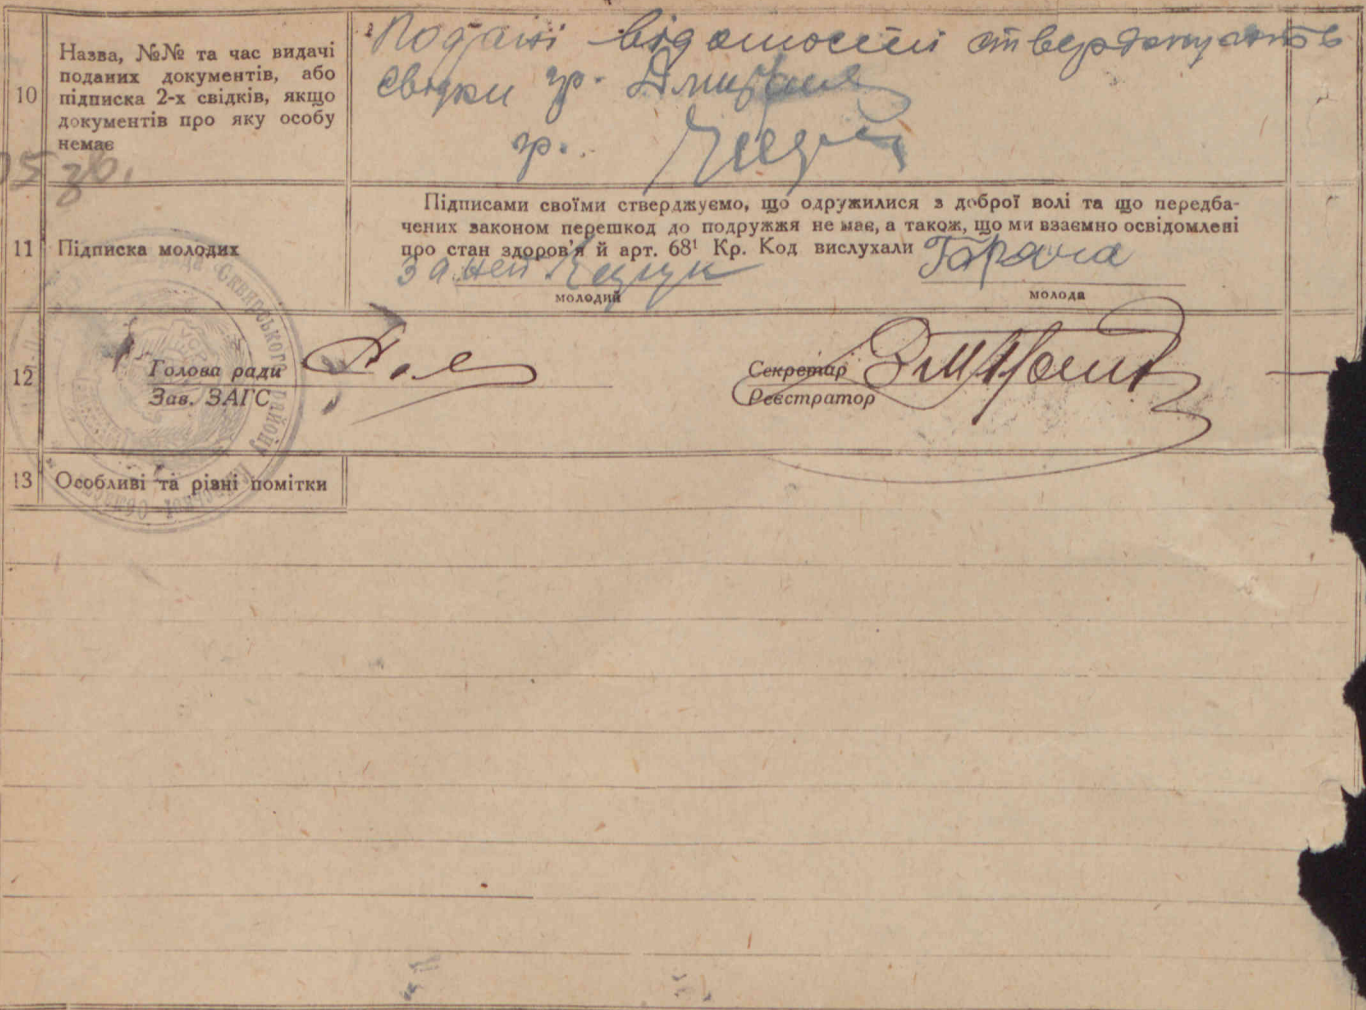 10
Назва, №№ та час видачі
поданих документів, або
підписка 2-х свідків, якщо
документів про яку особу
немає
Подані відомості стверджують
свідки гр.
гр.
11
Підписка молодих
Підписами своїми стверджуємо, що одружилися з доброї волі та що передба-
чених законом перешкод до подружжя не має, а також, що ми взаємно освідомлені
про стан здоров'я й арт. 68¹ Кр. Код вислухали
молодий
молода
12
Голова ради
Зав. ЗАГС
Секретар
Реєстратор
13
Особливі та різні помітки
Сквирського району